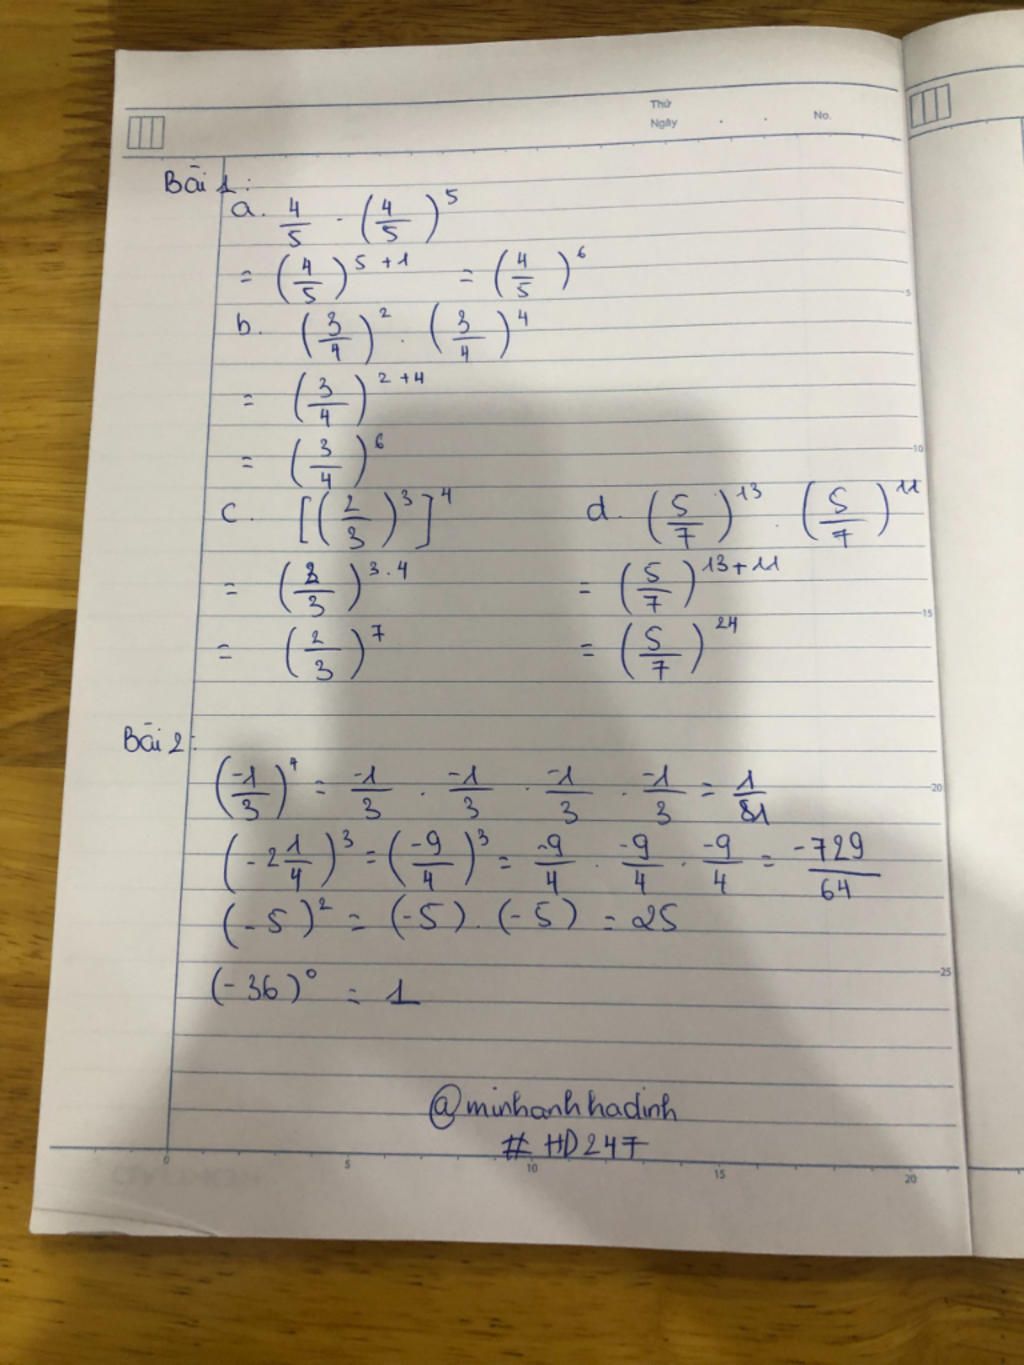 Thứ
Ngày . . No.
Bài 1:
a. 4/5 . (4/5)^5
= (4/5)^(5+1) = (4/5)^6
b. (3/4)^2 . (3/4)^4
= (3/4)^(2+4)
= (3/4)^6
c. [(2/3)^3]^4
= (2/3)^(3.4)
= (2/3)^7
d. (5/7)^13 . (5/7)^11
= (5/7)^(13+11)
= (5/7)^24
Bài 2:
(-1/3)^4 = -1/3 . -1/3 . -1/3 . -1/3 = 1/81
(-2 1/4)^3 = (-9/4)^3 = -9/4 . -9/4 . -9/4 = -729/64
(-5)^2 = (-5) . (-5) = 25
(-36)^0 = 1
@minhanhhadinh
# HD247
5
10
15
20
25
0 5 10 15 20